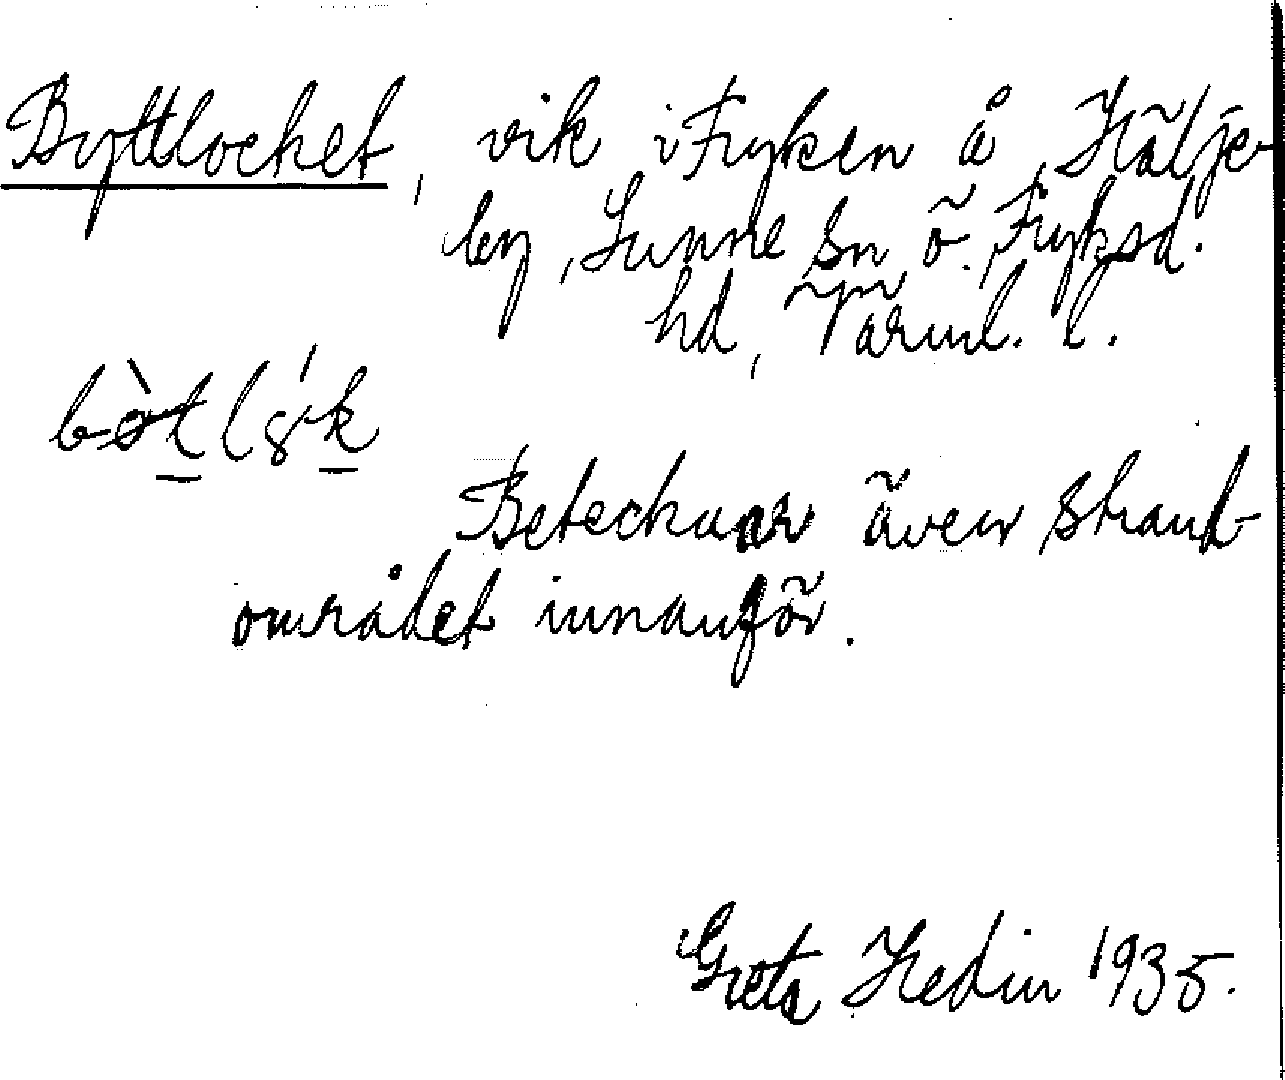 Byttlocket, vik i Fryken å Hälje-
by, Sunne sn, Ö. Fryksd.
hd, Värml. l.
Betecknar även strand-
området innanför.
Greta Hedin 1935.